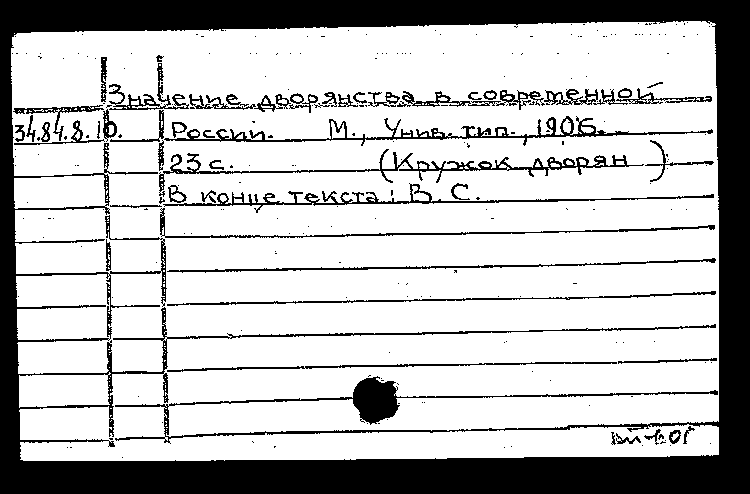 Значение дворянства в современной
34.84.8.10. России. М., Унив. тип., 1906.
23 с. (Кружок дворян )
В конце текста: В. С.